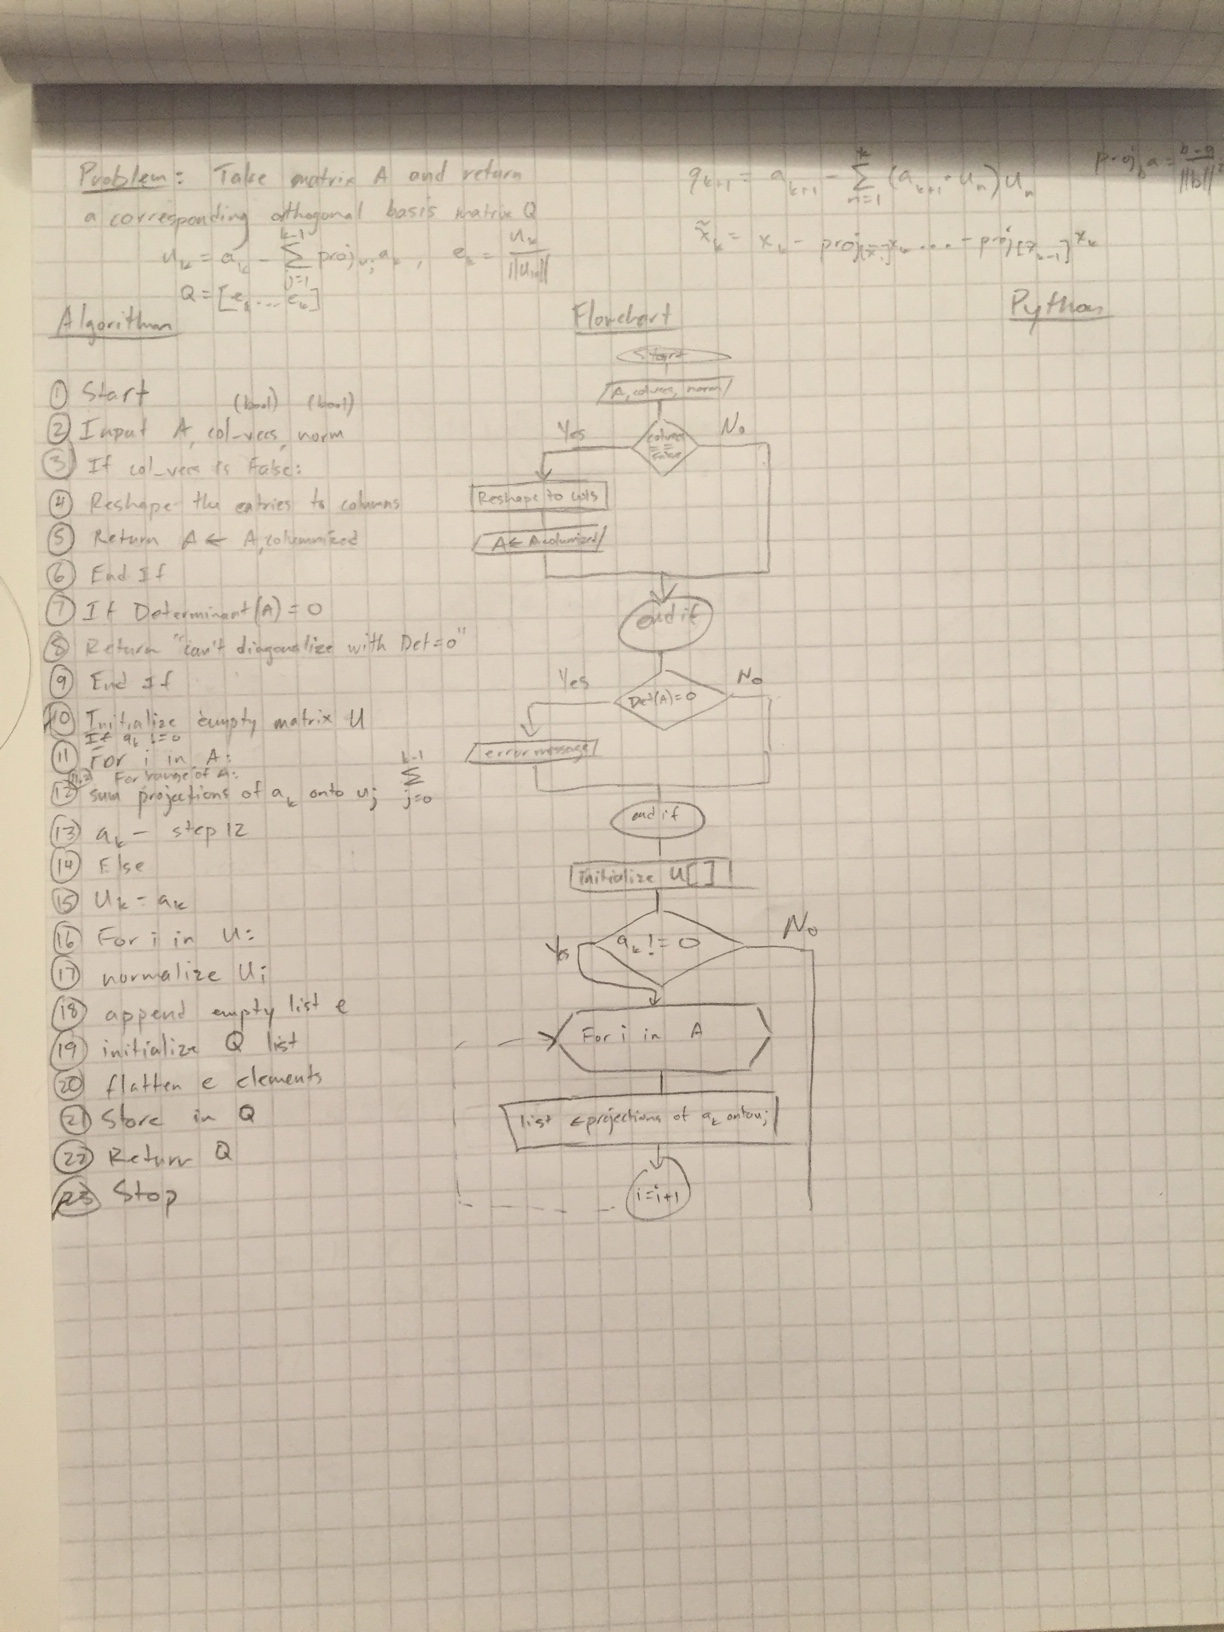 Problem: Take matrix A and return
a corresponding orthogonal basis matrix Q
u_k = a_k - Σ_{j=1}^{k-1} proj_{u_j} a_k , e_k = u_k / ||u_k||
Q = [e_1 ... e_k]
q_{k+1} = a_{k+1} - Σ_{n=1}^{k} (a_{k+1} · u_n) u_n
proj_b a = b·a / ||b||²
x̃_k = x_k - proj_[x̃_1] x_k .... - proj_[x̃_{k-1}] x_k
Algorithm
① Start
(bool) (bool)
② Input A, col_vecs, norm
③ If col_vecs is False:
④ Reshape the entries to columns
⑤ Return A ← A,columnized
⑥ End If
⑦ If Determinant(A) = 0
⑧ Return "can't diagonalize with Det=0"
⑨ End If
⑩ Initialize empty matrix U
If a_k != 0
⑪ For i in A:
For range of A:
⑫ sum projections of a_k onto u_j Σ_{j=0}^{k-1}
⑬ a_k - step 12
⑭ Else
⑮ U_k = a_k
⑯ For i in U:
⑰ normalize U_i
⑱ append empty list e
⑲ initialize Q list
⑳ flatten e elements
㉑ Store in Q
㉒ Return Q
㉓ Stop
Flowchart
Start
A, colvecs, norm
Yes
No
colvecs == False
Reshape to cols
A ← Acolumized
end if
Yes
No
Det(A)=0
error message
end if
initialize U[ ]
Yes
a_k != 0
No
For i in A
list ← projections of a_k onto u_j
i=i+1
Python